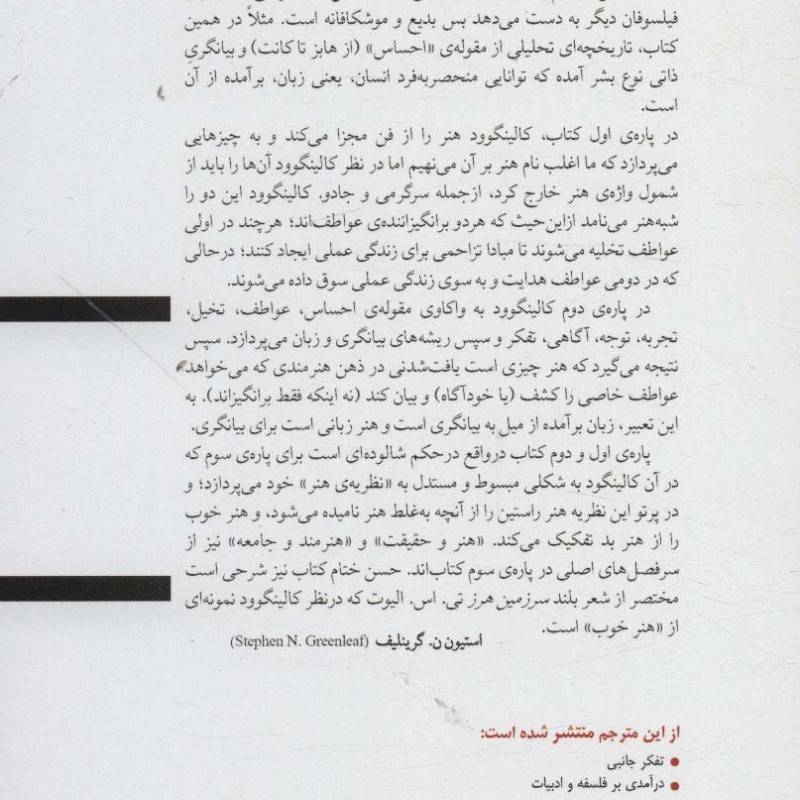 فیلسوفان دیگر به دست می‌دهد بس بدیع و موشکافانه است. مثلاً در همین
کتاب، تاریخچه‌ای تحلیلی از مقوله‌ی «احساس» (از هابز تا کانت) و بیانگریِ
ذاتی نوع بشر آمده که توانایی منحصربه‌فرد انسان، یعنی زبان، برآمده از آن
است.
در پاره‌ی اول کتاب، کالینگوود هنر را از فن مجزا می‌کند و به چیزهایی
می‌پردازد که ما اغلب نام هنر بر آن می‌نهیم اما در نظر کالینگوود آن‌ها را باید از
شمول واژه‌ی هنر خارج کرد، ازجمله سرگرمی و جادو. کالینگوود این دو را
شبه‌هنر می‌نامد ازاین‌حیث که هردو برانگیزاننده‌ی عواطف‌اند؛ هرچند در اولی
عواطف تخلیه می‌شوند تا مبادا تزاحمی برای زندگی عملی ایجاد کنند؛ درحالی
که در دومی عواطف هدایت و به سوی زندگی عملی سوق داده می‌شوند.
در پاره‌ی دوم کالینگوود به واکاوی مقوله‌ی احساس، عواطف، تخیل،
تجربه، توجه، آگاهی، تفکر و سپس ریشه‌های بیانگری و زبان می‌پردازد. سپس
نتیجه می‌گیرد که هنر چیزی است یافت‌شدنی در ذهن هنرمندی که می‌خواهد
عواطف خاصی را کشف (یا خودآگاه) و بیان کند (نه اینکه فقط برانگیزاند). به
این تعبیر، زبان برآمده از میل به بیانگری است و هنر زبانی است برای بیانگری.
پاره‌ی اول و دوم کتاب درواقع درحکم شالوده‌ای است برای پاره‌ی سوم که
در آن کالینگود به شکلی مبسوط و مستدل به «نظریه‌ی هنر» خود می‌پردازد؛ و
در پرتو این نظریه هنر راستین را از آنچه به‌غلط هنر نامیده می‌شود، و هنر خوب
را از هنر بد تفکیک می‌کند. «هنر و حقیقت» و «هنرمند و جامعه» نیز از
سرفصل‌های اصلی در پاره‌ی سوم کتاب‌اند. حسن ختام کتاب نیز شرحی است
مختصر از شعر بلند سرزمین هرز تی. اس. الیوت که درنظر کالینگوود نمونه‌ای
از «هنر خوب» است.
استیون ن. گرینلیف (Stephen N. Greenleaf)
از این مترجم منتشر شده است:
● تفکر جانبی
● درآمدی بر فلسفه و ادبیات